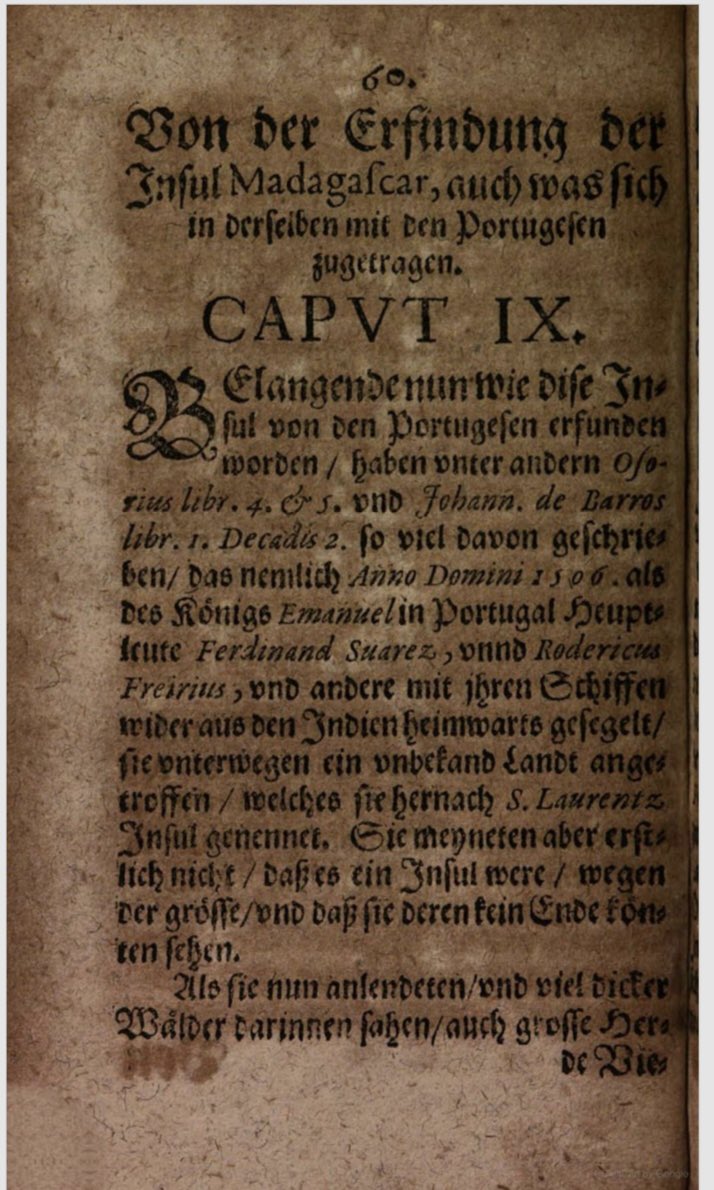 60.
Von der Erfindung der
Insul Madagaſcar, auch was ſich
in derſelben mit den Portugeſen
zugetragen.
CAPVT IX.
BElangende nun wie diſe In-
ſul von den Portugeſen erfunden
worden / haben vnter andern Oſo-
rius libr. 4. & 5. vnd Johann. de Barros
libr. 1. Decadis 2. ſo viel davon geſchrie-
ben/ das nemlich Anno Domini 1506. als
des Königs Emanuel in Portugal Heupt-
leute Ferdinand Suarez, vnnd Rodericus
Freirius, vnd andere mit jhren Schiffen
wider aus den Indien heimwarts geſegelt/
ſie vnterwegen ein vnbekand Landt ange-
troffen / welches ſie hernach S. Laurentz
Inſul genennet. Sie meyneten aber erſt-
lich nicht / daß es ein Inſul were / wegen
der gröſſe/vnd daß ſie deren kein Ende kön-
ten ſehen.
Als ſie nun anlendeten/vnd viel dicker
Wälder darinnen ſahen/auch groſſe Her-
de Vie-